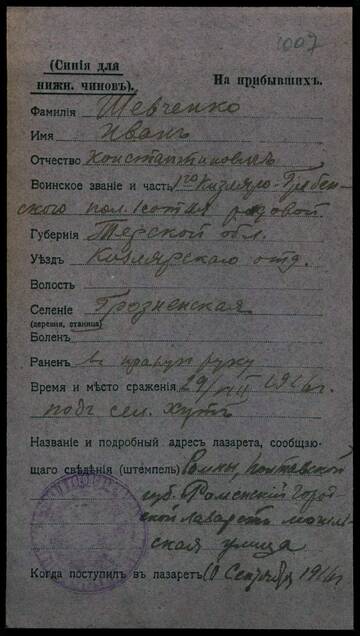 1007
(Синія для
нижн. чиновъ).
На прибывшихъ.
Фамилія Шевченко
Имя Иванъ
Отчество Константиновичъ
Воинское званіе и часть 1го Кизляро-Гребен-
ского пол. 1 сотня рядовой
Губернія Терской обл.
Уѣздъ Кизлярскаго отд.
Волость
Селеніе Грозненская
(деревня, станица)
Боленъ
Раненъ въ правую руку
Время и мѣсто сраженія 29/VIII 1916 г.
подъ сел.
Названіе и подробный адресъ лазарета, сообщаю-
щаго свѣдѣнія (штемпель) Ромны, Полтавской
губ. Роменскій Город-
ской лазаретъ
ская улица
Когда поступилъ въ лазаретъ 10 Сентября 1916 г